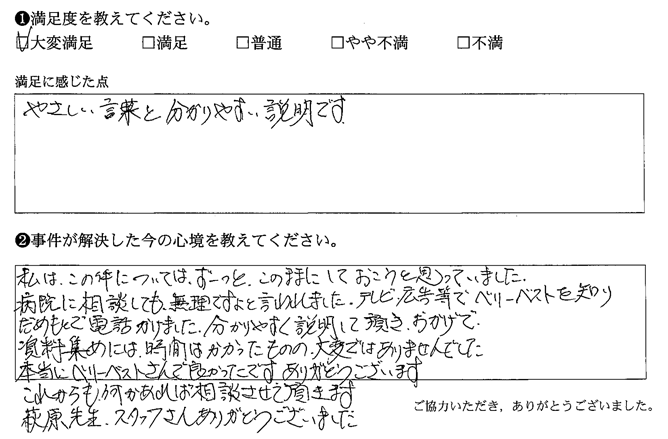 ❶満足度を教えてください。
☑大変満足 □満足 □普通 □やや不満 □不満
満足に感じた点
やさしい言葉と分かりやすい説明です
❷事件が解決した今の心境を教えてください。
私は、この件については、ずーっと、このままにしておこうと思っていました。
病院に相談しても、無理ですよと言われました。テレビ、広告等でベリーベストを知り
だめもとで電話かけました。分かりやすく説明して頂き、おかげで
資料集めには、時間はかかったものの、大変ではありませんでした
本当にベリーベストさんで良かったです ありがとうございます
これからも何かあれば相談させて頂きます
萩原先生、スタッフさんありがとうございました
ご協力いただき、ありがとうございました。